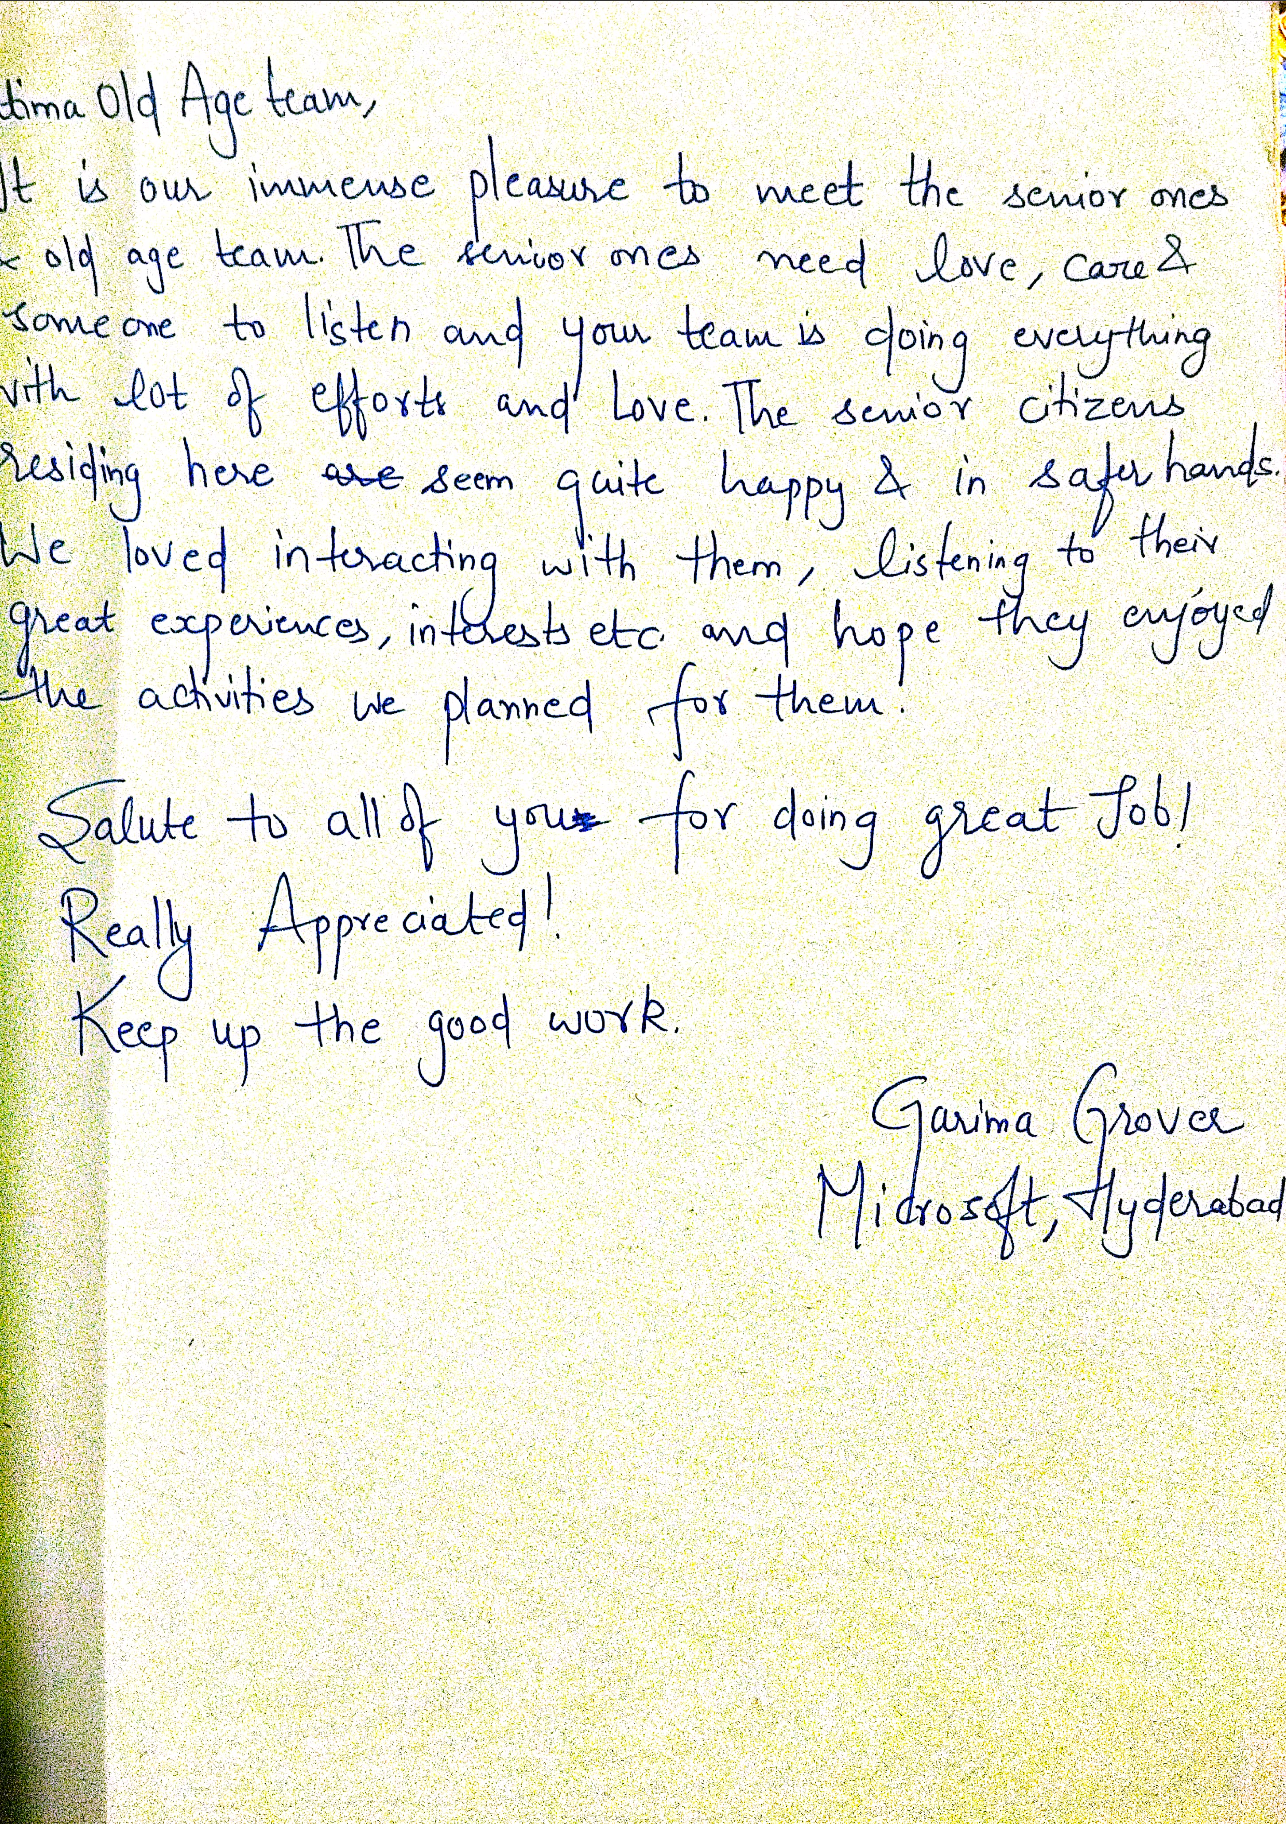 tima Old Age team,
It is our immense pleasure to meet the senior ones
& old age team. The senior ones need love, care &
someone to listen and your team is doing everything
with lot of efforts and Love. The senior citizens
residing here are seem quite happy & in safer hands.
We loved interacting with them, listening to their
great experiences, interests etc and hope they enjoyed
the activities we planned for them.
Salute to all of you for doing great Job!
Really Appreciated!
Keep up the good work.
Garima Grover
Microsoft, Hyderabad